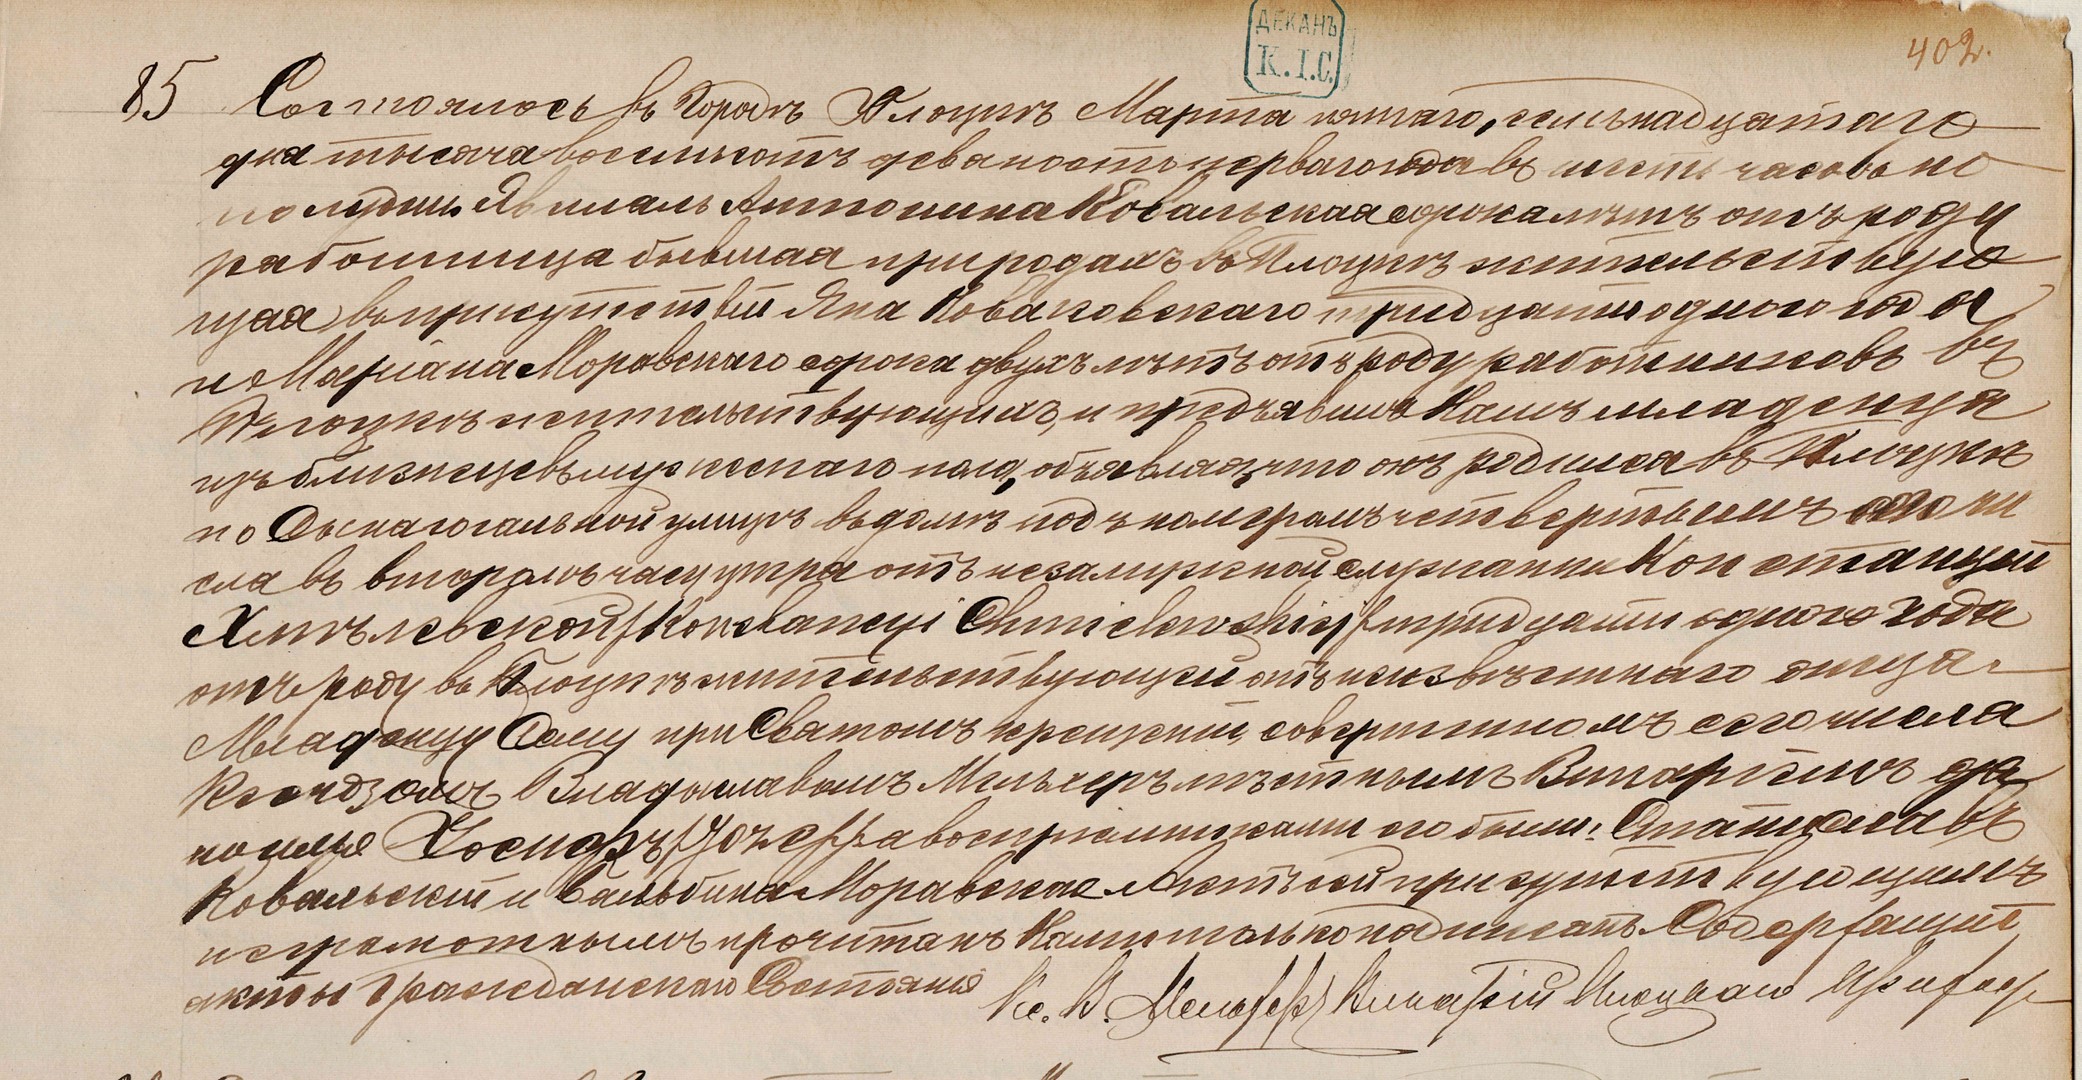 ДЕКАНЪ
К.I.С.
402.
85 Состоялось въ Городѣ Плоцкѣ Марта пятаго, семьнадцатаго
дня тысяча восемьсотъ девяносто перваго года въ шесть часовъ по
полудни. Явилась Антонина Ковальская сорока лѣтъ отъ роду
работница бывшая при родахъ въ Плоцкѣ жительствую
щая въ присутствiи Яна Коваковскаго тридцати одного года
и Марiана Моравскаго сорока двухъ лѣтъ отъ роду работниковъ въ
Плоцкѣ жительствующихъ, и предъявила Намъ младенца
изъ близнецевъ мужескаго пола, объявляя, что онъ родился въ Плоцкѣ
по Сынагогальной улицѣ въ домѣ подъ номеромъ четвертымъ сего чи
сла въ второмъ часу утра отъ незамужной служанки Констанцiи
Хмѣлевской /Konstancyi Chmielewskiej/ тридцати одного года
отъ роду въ Плоцкѣ жительствующей отъ неизвѣстнаго отца.
Младенцу Сему при Святомъ крещенiи, совершенномъ сего числа
Ксендзомъ Владиславомъ Мельхеръ мѣстнымъ Викарiемъ да
но имя Iосифъ /Józef/ а воспрiемниками его были: Станиславъ
Ковальскiй и Бальбина Моравская. Актъ сей присутствующимъ
неграмотнымъ прочитанъ Нами только подписанъ. Содержащiй
акты Гражданскаго Состоянiя
Кс. В. Мельхеръ Викарiй Плоцкаго Прихода